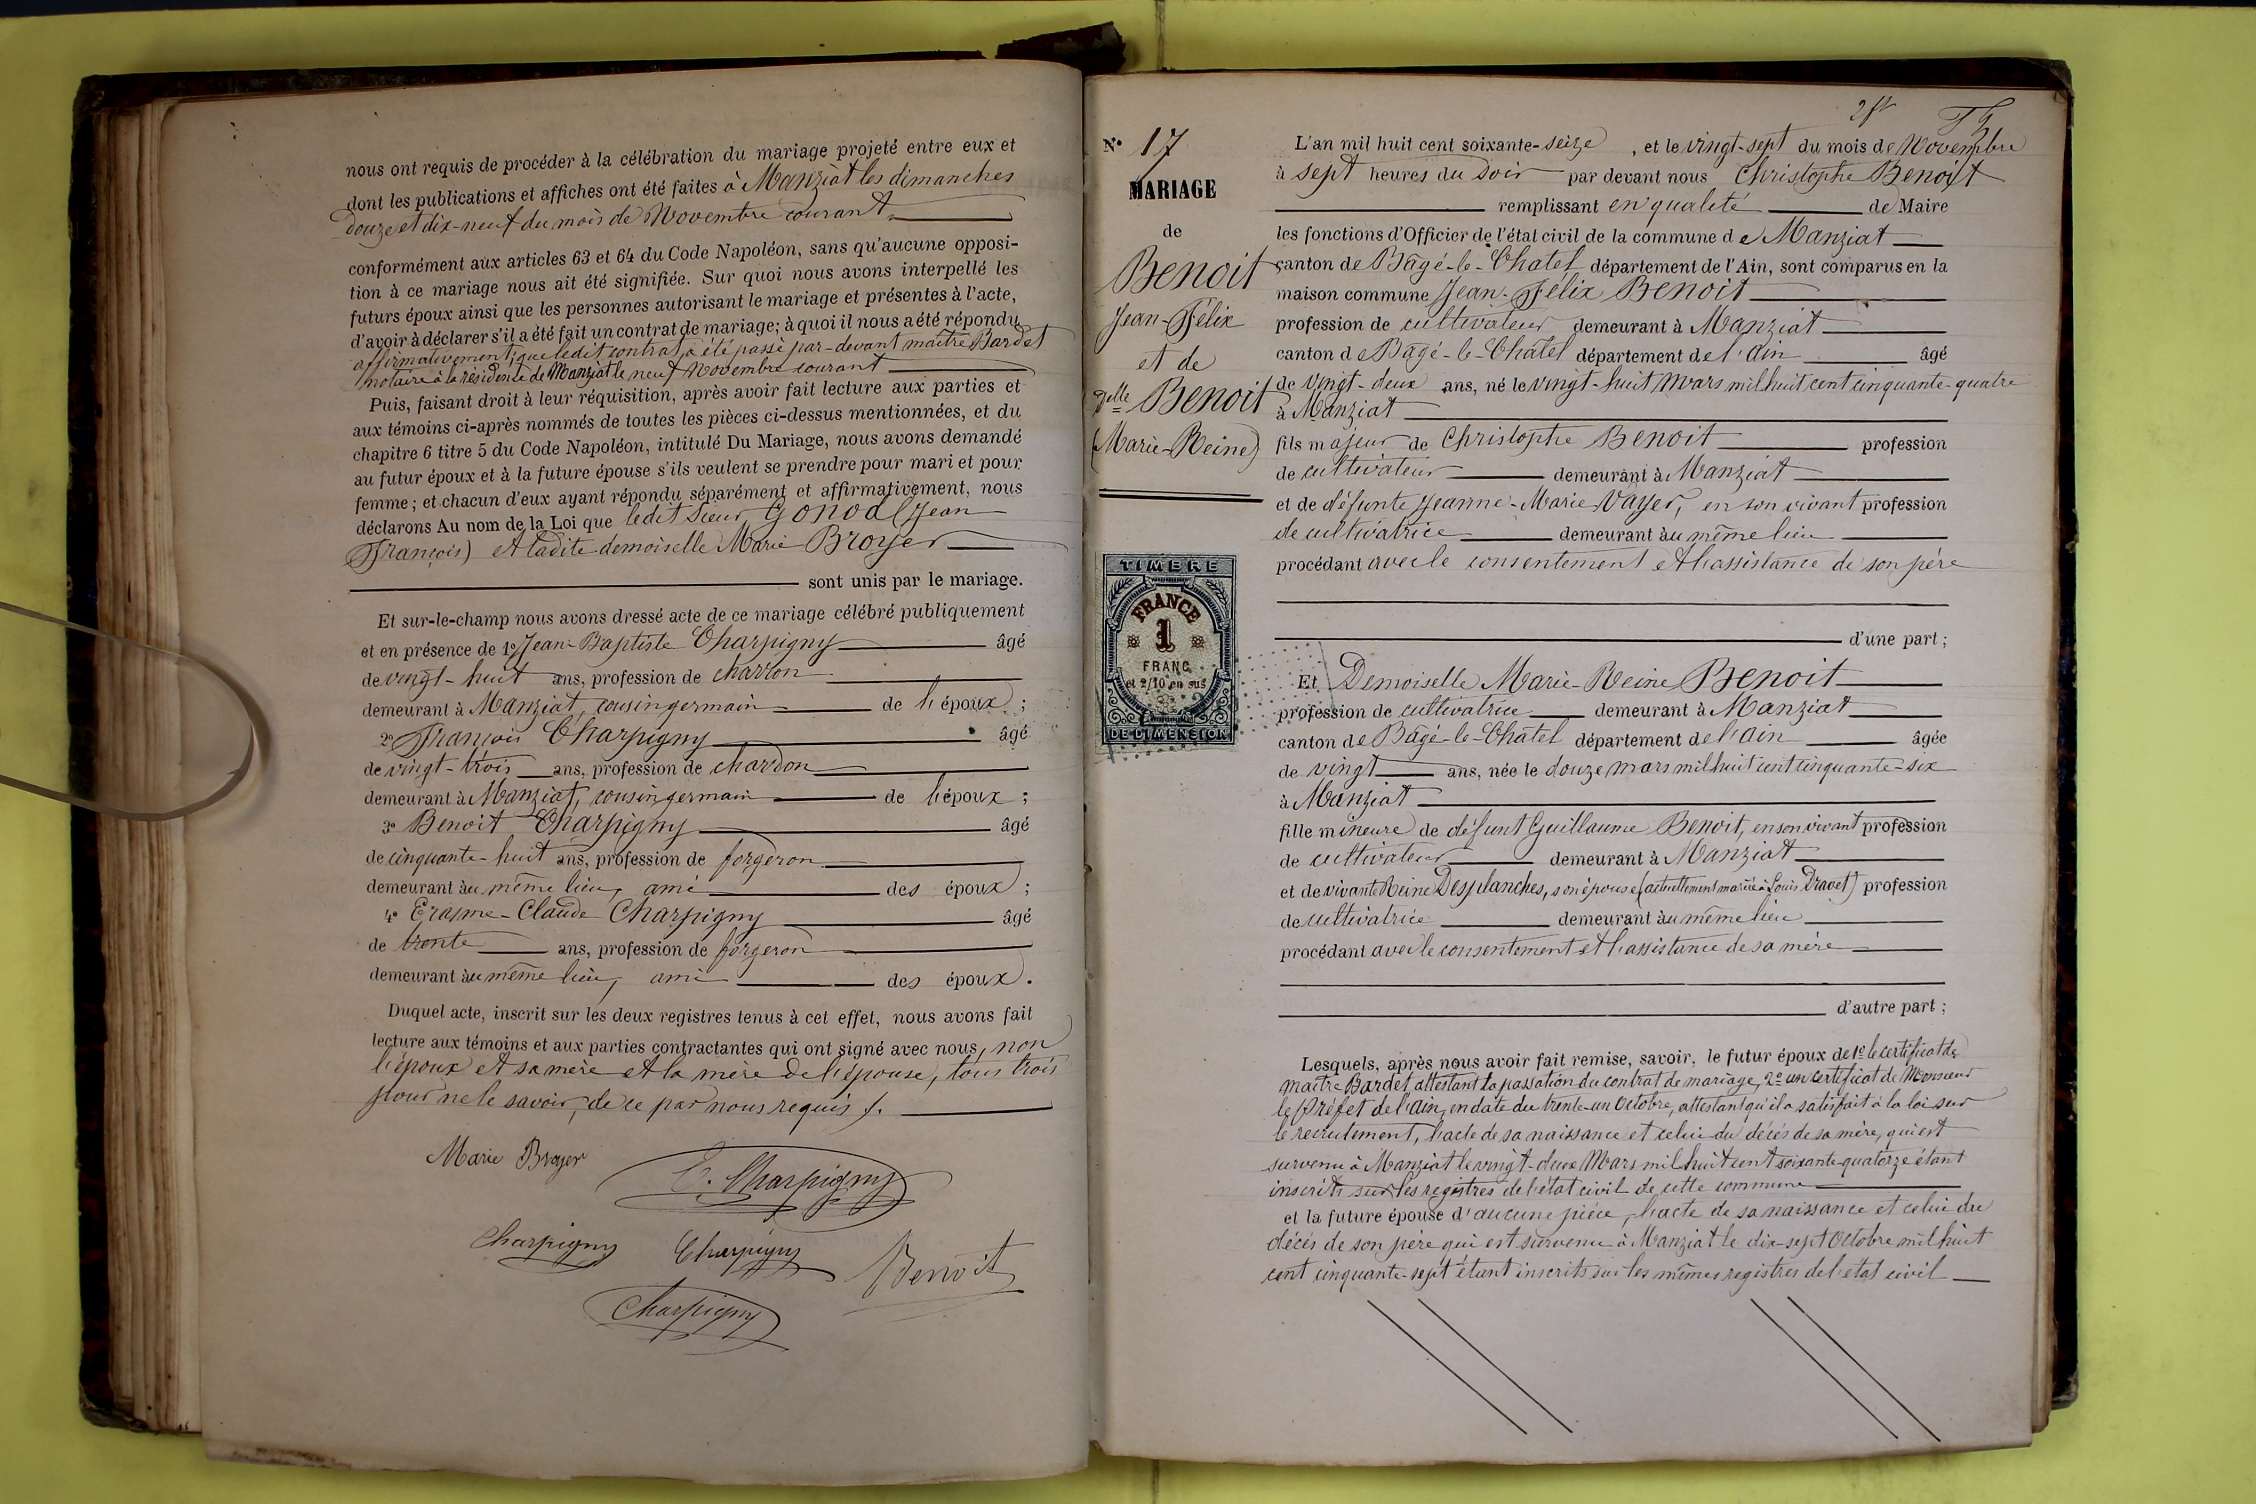 nous ont requis de procéder à la célébration du mariage projeté entre eux et
dont les publications et affiches ont été faites à Manziat les dimanches
douze et dix-neuf du mois de Novembre courant
conformément aux articles 63 et 64 du Code Napoléon, sans qu'aucune opposi-
tion à ce mariage nous ait été signifiée. Sur quoi nous avons interpellé les
futurs époux ainsi que les personnes autorisant le mariage et présentes à l'acte,
d'avoir à déclarer s'il a été fait un contrat de mariage; à quoi il nous a été répondu
affirmativement; que ledit contrat a été passé par-devant maître Bardet
notaire à la résidence de Manziat le neuf Novembre courant
Puis, faisant droit à leur réquisition, après avoir fait lecture aux parties et
aux témoins ci-après nommés de toutes les pièces ci-dessus mentionnées, et du
chapitre 6 titre 5 du Code Napoléon, intitulé Du Mariage, nous avons demandé
au futur époux et à la future épouse s'ils veulent se prendre pour mari et pour
femme; et chacun d'eux ayant répondu séparément et affirmativement, nous
déclarons Au nom de la Loi que ledit Sieur Gonod (Jean
François) et ladite demoiselle Marie Broyer
sont unis par le mariage.
Et sur-le-champ nous avons dressé acte de ce mariage célébré publiquement
et en présence de 1º Jean-Baptiste Charpigny âgé
de vingt-huit ans, profession de charron
demeurant à Manziat, cousin germain de l'époux;
2º François Charpigny âgé
de vingt-trois ans, profession de charron
demeurant à Manziat, cousin germain de l'époux;
3º Benoit Charpigny âgé
de cinquante-huit ans, profession de forgeron
demeurant au même lieu, ami des époux;
4º Erasme-Claude Charpigny âgé
de trente ans, profession de forgeron
demeurant au même lieu, ami des époux.
Duquel acte, inscrit sur les deux registres tenus à cet effet, nous avons fait
lecture aux témoins et aux parties contractantes qui ont signé avec nous, non
l'époux et sa mère et la mère de l'épouse, tous trois
pour ne le savoir, de ce par nous requis
Marie Broyer
E. Charpigny
Charpigny Charpigny Benoit
Charpigny
Nº 17
MARIAGE
de
Benoit
Jean-Félix
et de
Delle Benoit
(Marie-Reine)
TIMBRE
FRANCE
1
FRANC
et 2/10 en sus
DE DIMENSION
L'an mil huit cent soixante-seize, et le vingt-sept du mois de Novembre
à sept heures du soir par devant nous Christophe Benoit
remplissant en qualité de Maire
les fonctions d'Officier de l'état civil de la commune de Manziat
canton de Bâgé-le-Châtel département de l'Ain, sont comparus en la
maison commune Jean-Félix Benoit
profession de cultivateur demeurant à Manziat
canton de Bâgé-le-Châtel département de l'Ain âgé
de vingt-deux ans, né le vingt-huit Mars mil huit cent cinquante-quatre
à Manziat
fils majeur de Christophe Benoit profession
de cultivateur demeurant à Manziat
et de défunte Jeanne-Marie Vayer, en son vivant profession
de cultivatrice demeurant au même lieu
procédant avec le consentement et l'assistance de son père
d'une part;
Et Demoiselle Marie-Reine Benoit
profession de cultivatrice demeurant à Manziat
canton de Bâgé-le-Châtel département de l'Ain âgée
de vingt ans, née le douze mars mil huit cent cinquante-six
à Manziat
fille mineure de défunt Guillaume Benoit, en son vivant profession
de cultivateur demeurant à Manziat
et de vivante Reine Desplanches, son épouse (actuellement mariée à Louis Dravet) profession
de cultivatrice demeurant au même lieu
procédant avec le consentement et l'assistance de sa mère
d'autre part;
Lesquels, après nous avoir fait remise, savoir, le futur époux de 1º le certificat de
maître Bardet attestant la passation du contrat de mariage, 2º un certificat de Monsieur
le Préfet de l'Ain, en date du trente-un Octobre, attestant qu'il a satisfait à la loi sur
le recrutement, l'acte de sa naissance et celui du décès de sa mère, qui est
survenu à Manziat le vingt-deux Mars mil huit cent soixante-quatorze étant
inscrits sur les registres de l'état civil de cette commune
et la future épouse d'aucune pièce, l'acte de sa naissance et celui du
décès de son père qui est survenu à Manziat le dix-sept Octobre mil huit
cent cinquante-sept étant inscrits sur les mêmes registres de l'état civil